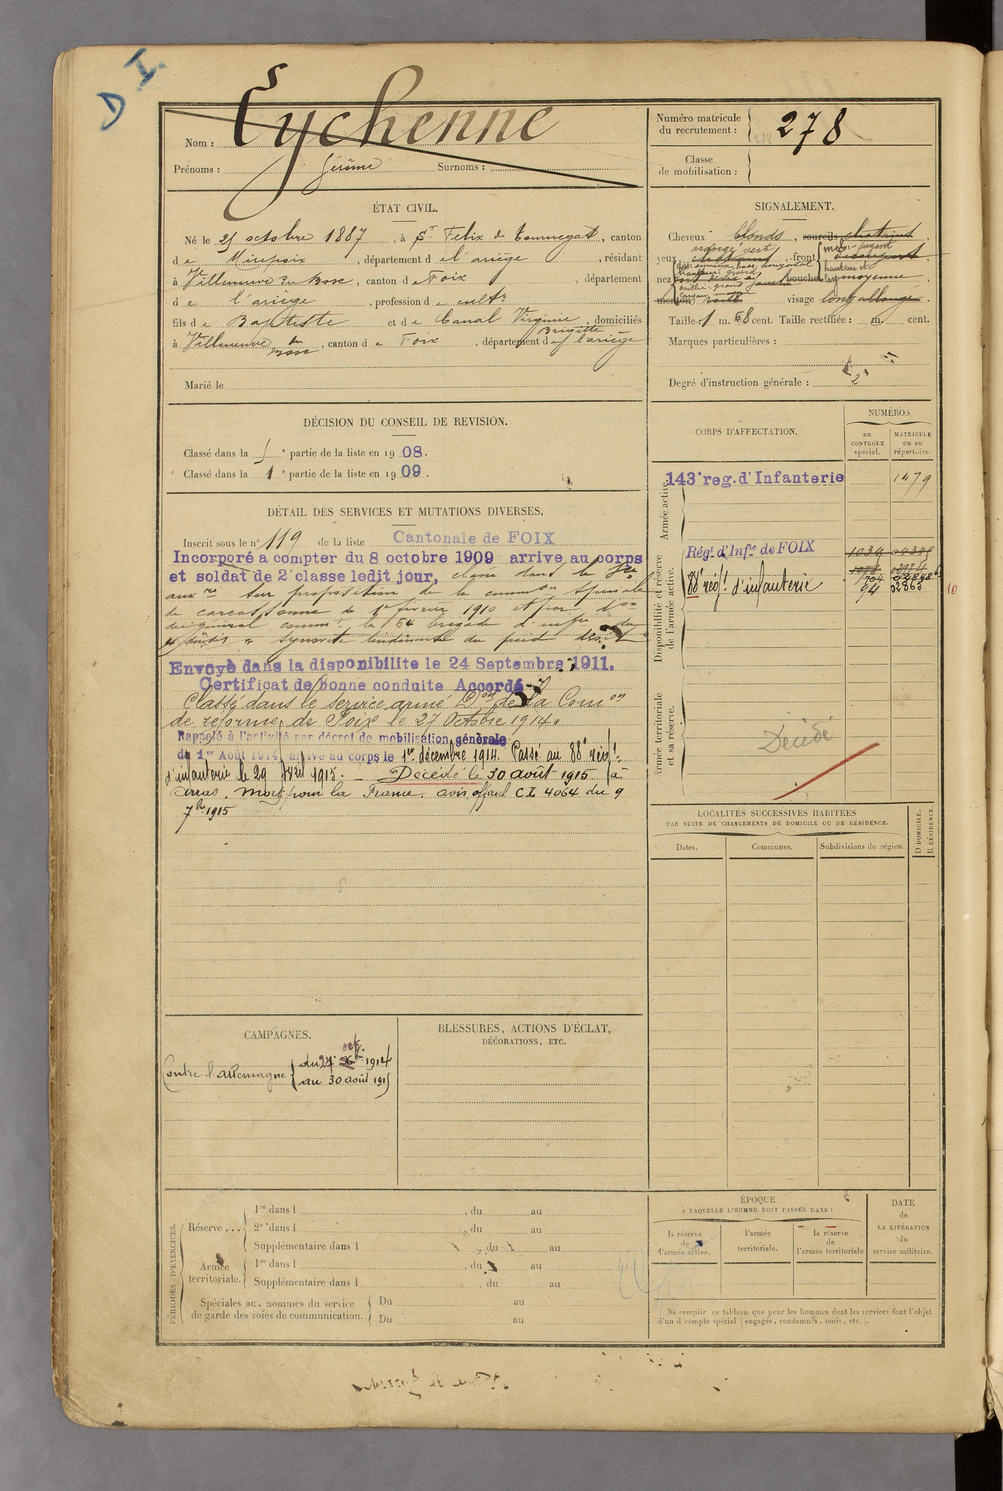 D I.
Eychenne
Nom :
Prénoms : Jérôme Surnoms :
Numéro matricule
du recrutement : 278
Classe
de mobilisation :
ÉTAT CIVIL.
Né le 25 octobre 1887, à St Felix de Tournegat, canton
de Mirepoix, département de l'ariège, résidant
à Villeneuve du Bosc, canton de Foix, département
de l'ariège, profession de cultr
fils de Baptiste et de Canal Virginie Brigitte, domiciliés
à Villeneuve du Bosc, canton de Foix, département de l'ariège
Marié le
SIGNALEMENT.
Cheveux blonds, sourcils châtains
yeux orangé vert, front
nez bouche moyenne
menton visage long allongé
Taille : 1 m. 68 cent. Taille rectifiée : m. cent.
Marques particulières :
Degré d'instruction générale : 2
DÉCISION DU CONSEIL DE REVISION.
Classé dans la 5e partie de la liste en 1908.
Classé dans la 1e partie de la liste en 1909.
CORPS D'AFFECTATION.
NUMÉROS
au
CONTRÔLE
spécial.
MATRICULE
ou au
répertoire.
Armée active.
143e reg. d'Infanterie 1479
Disponibilité et réserve
de l'armée active.
Régt d'Infie de FOIX 1039
88e régt d'infanterie 94
10
Armée territoriale
et sa réserve.
Décédé
DÉTAIL DES SERVICES ET MUTATIONS DIVERSES.
Inscrit sous le n° 119 de la liste Cantonale de FOIX
Incorporé a compter du 8 octobre 1909 arrive au corps
et soldat de 2e classe ledit jour, classé dans le Sce
auxre sur proposition de la commson spéciale
de carcassonne du 1er février 1910 et par don
du général commt la 64 brigade d'infie
Envoyé dans la disponibilite le 24 Septembre 1911.
Certificat de bonne conduite Accordé
Classé dans le service armé Don de la Comon
de réforme de Foix le 27 Octobre 1914.
Rappelé à l'activité par décret de mobilisation générale
du 1er Août 1914, arrivé au corps le 1er décembre 1914. Passé au 88e régt
d'infanterie le 29 Avril 1915. Décédé le 30 août 1915 à
Arras. Mort pour la France. avis officiel CI 4064 du 9
7bre 1915
LOCALITÉS SUCCESSIVES HABITÉES
PAR SUITE DE CHANGEMENTS DE DOMICILE OU DE RÉSIDENCE.
Dates. Communes. Subdivisions de région. D DOMICILE. R RÉSIDENCE.
CAMPAGNES.
Contre l'allemagne
du 27 oct. 1914
au 30 août 1915
BLESSURES, ACTIONS D'ÉCLAT,
DÉCORATIONS, ETC.
PÉRIODES D'EXERCICES.
Réserve ...
1re dans l , du au
2e dans l , du au
Supplémentaire dans l , du au
Armée
territoriale.
1re dans l , du au
Supplémentaire dans l , du au
Spéciales aux hommes du service
de garde des voies de communication.
Du au
Du au
ÉPOQUE
À LAQUELLE L'HOMME DOIT PASSER DANS :
la réserve
de
l'armée active.
l'armée
territoriale.
la réserve
de
l'armée territoriale
DATE
de
LA LIBÉRATION
du
service militaire.
Ne remplir ce tableau que pour les hommes dont les services font l'objet
d'un compte spécial (engagés, condamnés, omis, etc.).